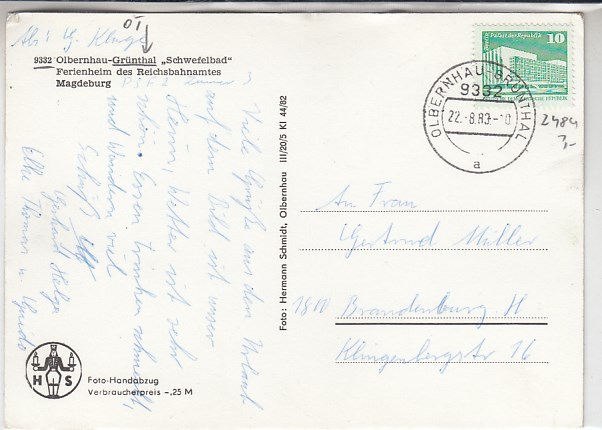 OT
Abs: G. Kluge
9332 Olbernhau-Grünthal „Schwefelbad"
Ferienheim des Reichsbahnamtes
Magdeburg
Viele Grüße aus dem Urlaub
auf dem Bild ist unser
Heim, Wetter ist sehr
schön. Essen, trinken schmeckt,
und wandern viel
Gerlinde Helga
Elke Thomas u. Guido
Foto: Hermann Schmidt, Olbernhau III/20/5 Kl 44/82
H S
Foto-Handabzug
Verbraucherpreis -,25 M
Palast der Republik
10
OLBERNHAU-GRÜNTHAL
9332
22.-8.8
a
2484
An Frau
Gertrud Müller
1800 Brandenburg. H
Klingenbergstr 16